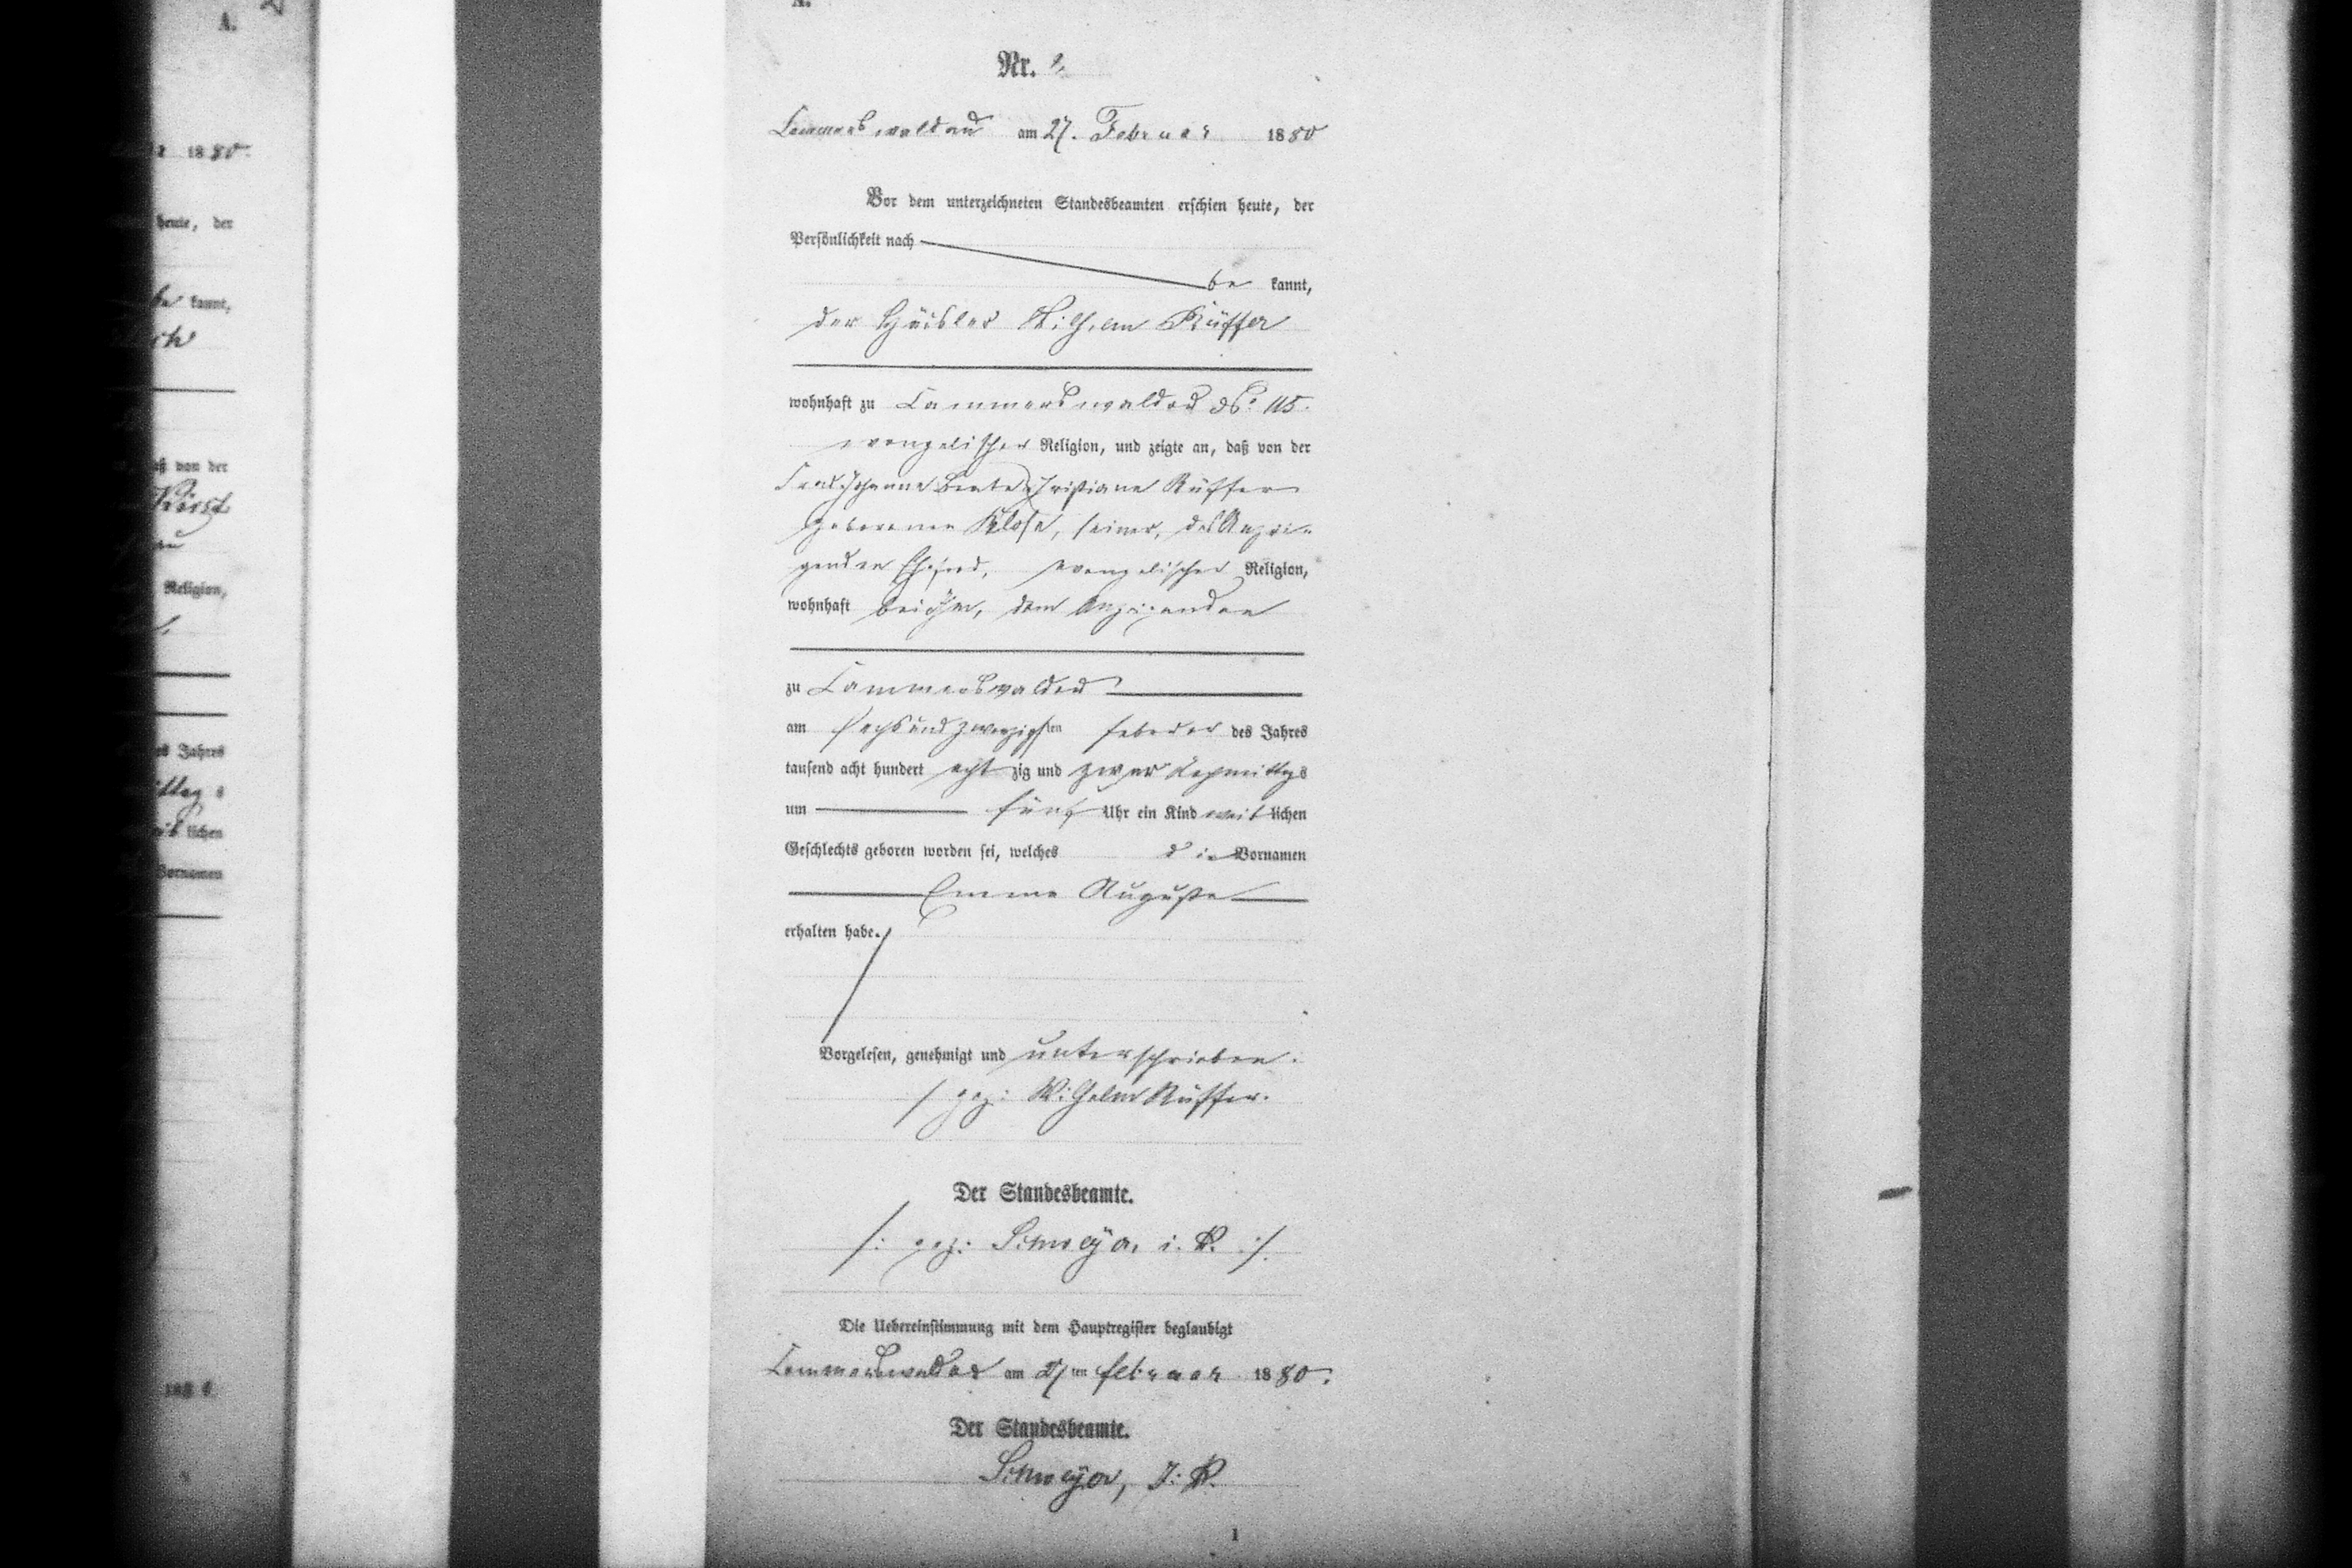 A.
Nr. 2.
Cammerswaldau am 27. Februar 1880
Vor dem unterzeichneten Standesbeamten erschien heute, der
Persönlichkeit nach
be kannt,
der Häusler Wilhelm Rüffer
wohnhaft zu Cammerswaldau No. 115.
evangelischer Religion, und zeigte an, daß von der
Johanne Beate Christiane Rüffer
geborenen Klose, seiner, des Anzei-
genden Ehefrau, evangelischer Religion,
wohnhaft bei ihm, dem Anzeigenden
zu Cammerswaldau
am sechsundzwanzigsten Februar des Jahres
tausend acht hundert acht zig und zwar Nachmittags
um fünf Uhr ein Kind weib lichen
Geschlechts geboren worden sei, welches die Vornamen
Emma Auguste
erhalten habe.
Vorgelesen, genehmigt und unterschrieben.
gez: Wilhelm Rüffer.
Der Standesbeamte.
/: gez: i. V. :/
Die Uebereinstimmung mit dem Hauptregister beglaubigt
Cammerswaldau am 27ten Februar 1880.
Der Standesbeamte.
I. V.
1
A.
1880.
heute, der
be kannt,
daß von der
Religion,
des Jahres
lichen
Vornamen